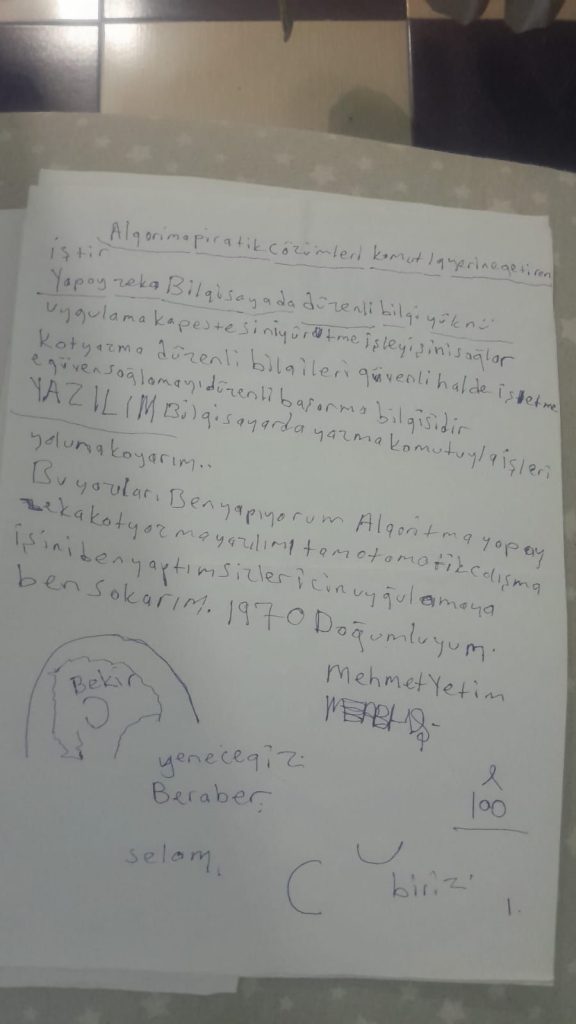 Algorima piratik çözümleri komutla yerine getiren
iştir
Yapay zeka Bilgisayada düzenli bilgi yüknü
uygulama kapestesini yürütme işleyişini sağlar
Kotyazma düzenli bilgileri güvenli halde işletme
e güven sağlamayı düzenli başarma bilgisidir
YAZILIM Bilgisayarda yazma komutuyla işleri
yoluma koyarım..
Bu yazıları Ben yapıyorum Algoritma yapay
zeka kotyazma yazılımı tam otomotik çalışma
işini ben yaptım sizler için uygulamaya
ben sokarım. 1970 Doğumluyum.
Mehmet Yetim
Bekir
yeneceğiz
Beraber.
100
selam.
biriz
1.